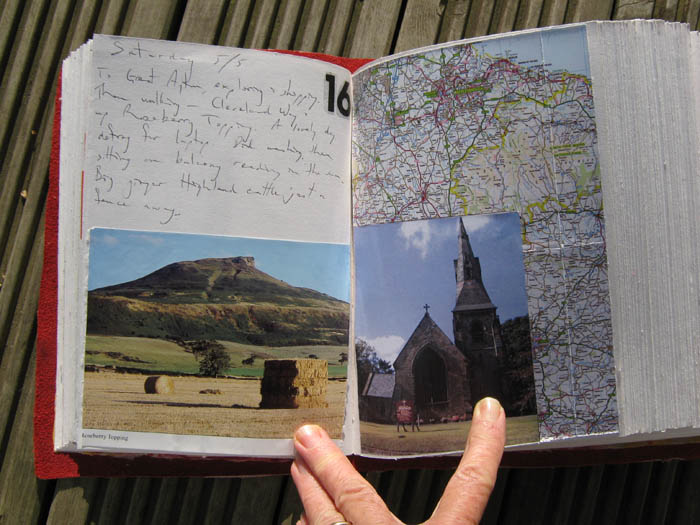 Saturday 5/5
To Great Ayton, exploring & shopping.
Then walking – Cleveland Way,
up Roseberry Topping. A lovely day
for Did washing, then
sitting on balcony reading in the sun.
Big ginger Highland cattle just a
fence away.
16
Roseberry Topping